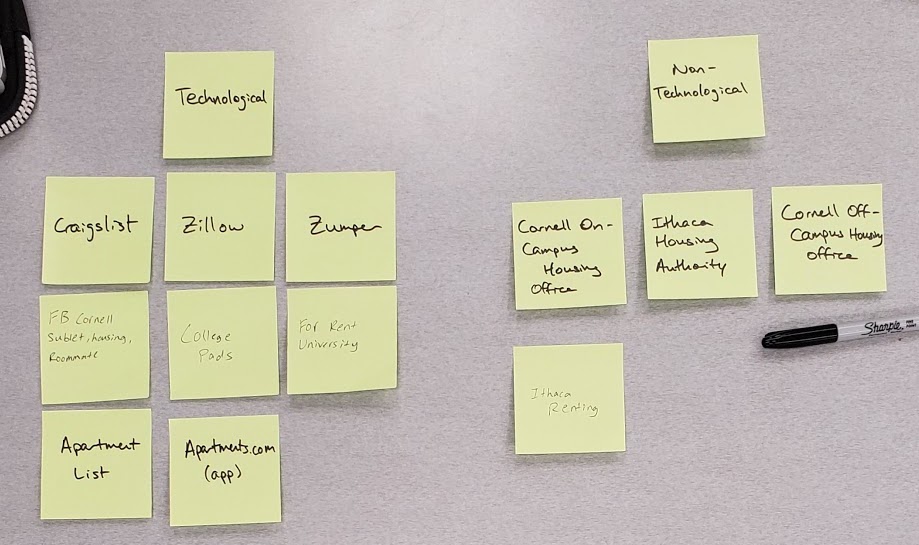 Technological
Craigslist
Zillow
Zumper
FB Cornell
Sublet, housing,
Roommate
College
Pads
For Rent
University
Apartment
List
Apartments.com
(app)
Non-
Technological
Cornell On-
Campus
Housing
Office
Ithaca
Housing
Authority
Cornell Off-
Campus Housing
Office
Ithaca
Renting
Sharpie